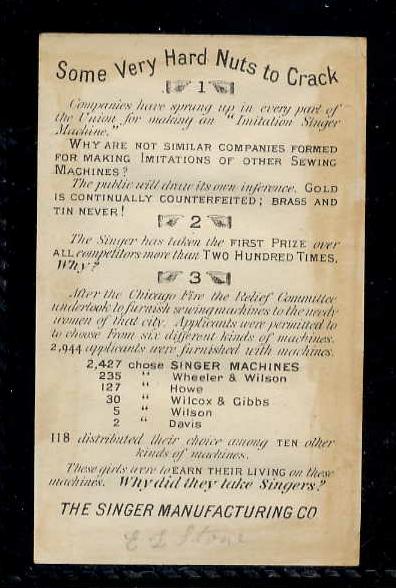 Some Very Hard Nuts to Crack
1
Companies have sprung up in every part of
the Union for making an "Imitation Singer
Machine."
WHY ARE NOT SIMILAR COMPANIES FORMED
FOR MAKING IMITATIONS OF OTHER SEWING
MACHINES?
The public will draw its own inference. GOLD
IS CONTINUALLY COUNTERFEITED; BRASS AND
TIN NEVER!
2
The Singer has taken the FIRST PRIZE over
ALL competitors more than TWO HUNDRED TIMES.
Why?
3
After the Chicago Fire the Relief Committee
undertook to furnish sewing machines to the needy
women of that city. Applicants were permitted to
to choose From six different kinds of machines.
2,944 applicants were furnished with machines.
2,427 chose SINGER MACHINES
235 " Wheeler & Wilson
127 " Howe
30 " Wilcox & Gibbs
5 " Wilson
2 " Davis
118 distributed their choice among TEN other
kinds of machines.
These girls were to EARN THEIR LIVING on these
machines. Why did they take Singers?
THE SINGER MANUFACTURING CO
E L Stone